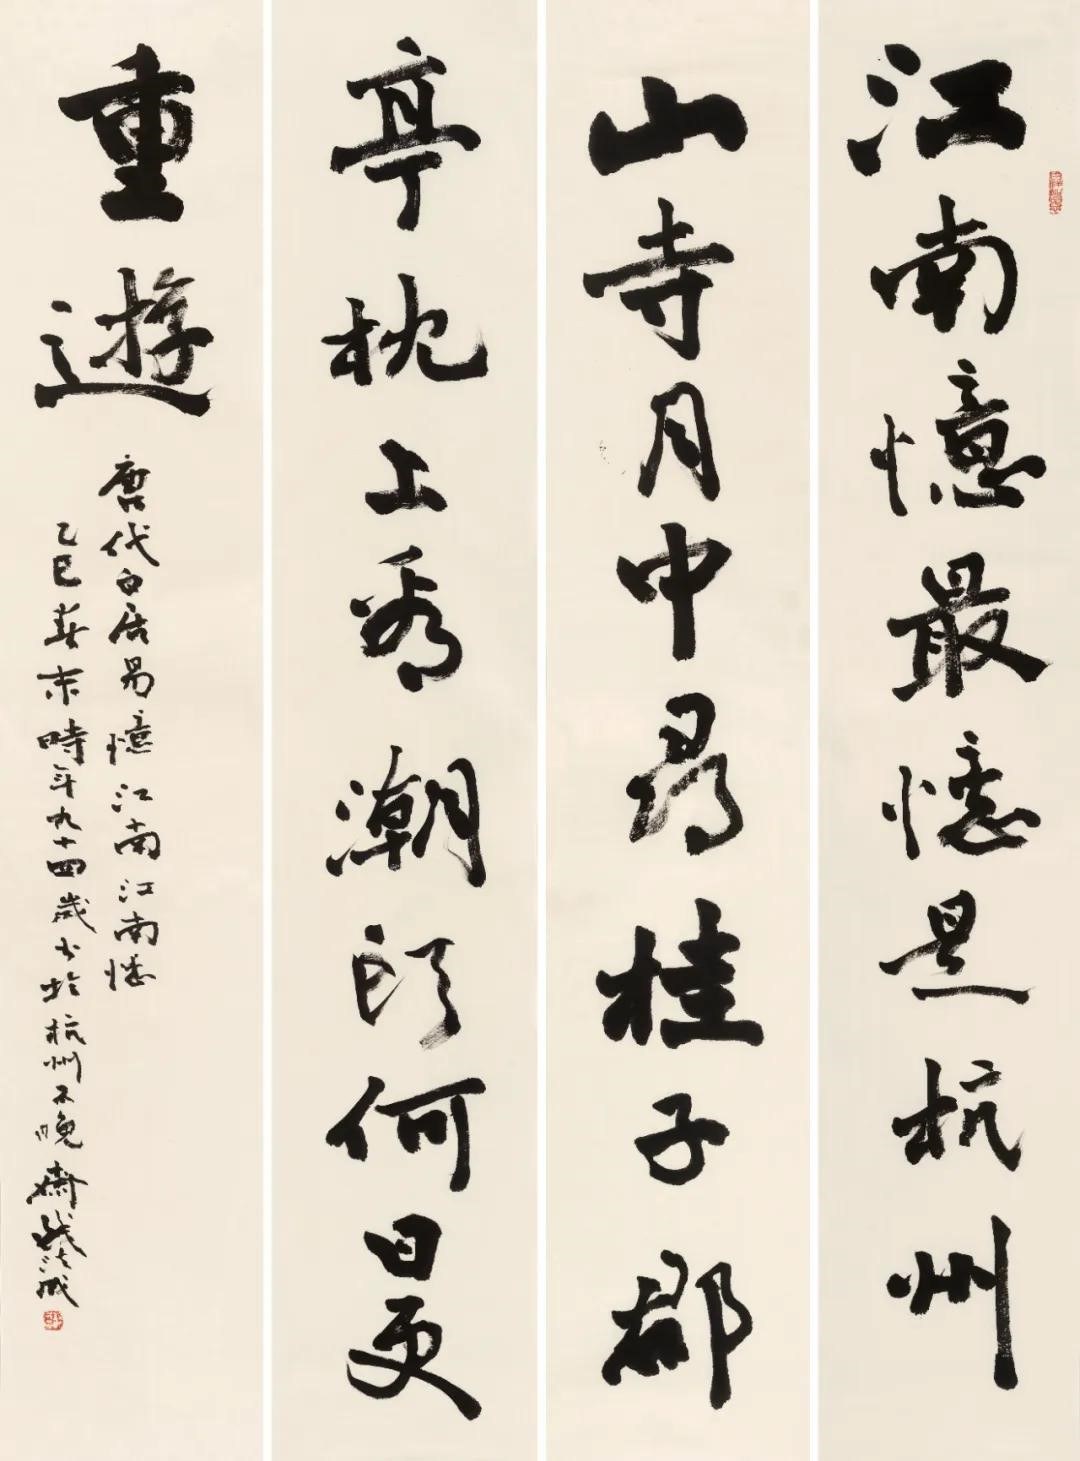 江南憶最憶是杭州
山寺月中尋桂子郡
亭枕上看潮頭何日更
重遊
唐代白居易憶江南江南憶
乙巳春末時年九十四歲书於杭州不晚齋錢法成